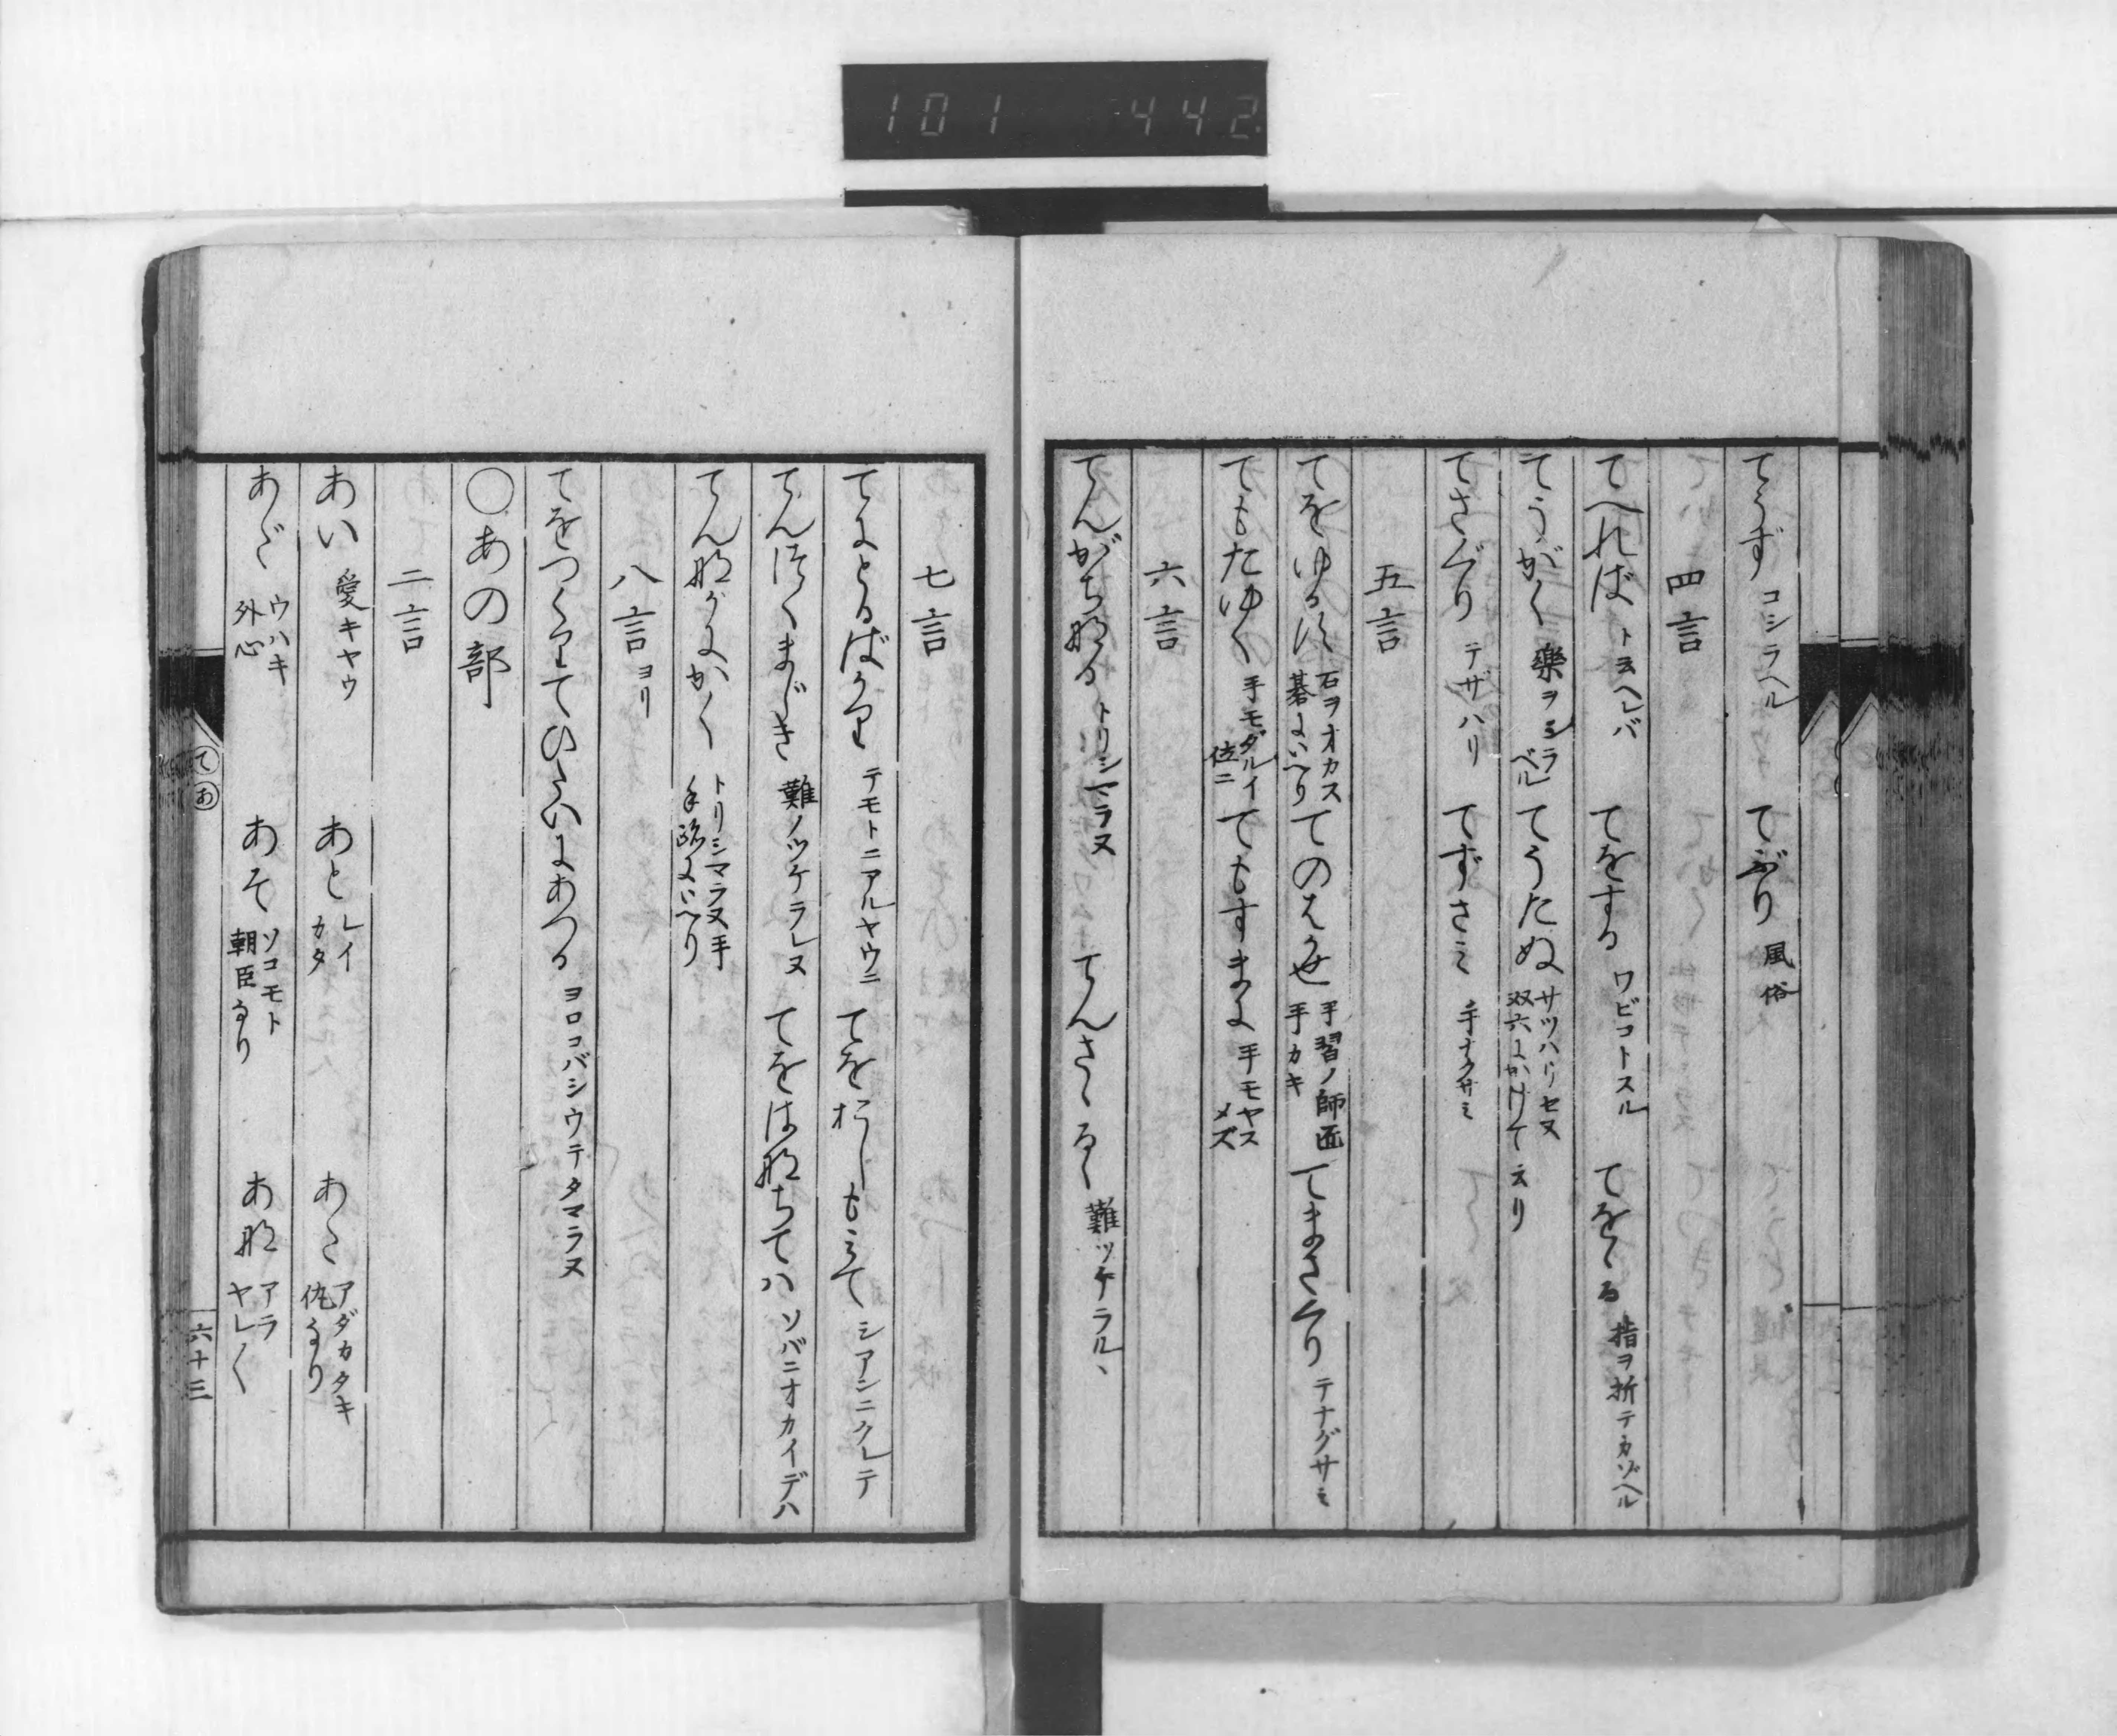 101 442
てうず コシラヘル てぶり 風俗
四言
てへれば ト云ヘレバ てをする ワビコトスル てをくる 指ヲ折テカゾヘル
てうがく 樂ヲシラベル てうたぬ サツハリセヌ 双六にかけて云り
てさぐり テザハリ てずさミ 手ナクサミ
五言
てをゆるす 石ヲオカス 碁にいへり てのはかせ 手習ノ師匠 手カキ てまさぐり テナグサミ
てもたゆく 手モダルイ 位ニ てもすまに 手モヤスメズ
六言
てんがちなる トリシマラヌ てんさくるく 難ツケラルヽ
七言
てにとるばかり テモトニアルヤウニ てをおしもミて シアンニクレテ
てんつくまじき 難ノツケラレヌ てをはなちてハ ソバニオカイデハ
てんながにかく トリシマラヌ手 手跡にいへり
八言ヨリ
てをつくりてひたいにあつる ヨロコバシウテタマラヌ
○あの部
二言
あい 愛キヤウ あと レイ カタ あた アダカタキ 仇なり
あだ ウハキ 外心 あそ ソコモト 朝臣なり あな アラ ヤレ〱
てあ
六十三